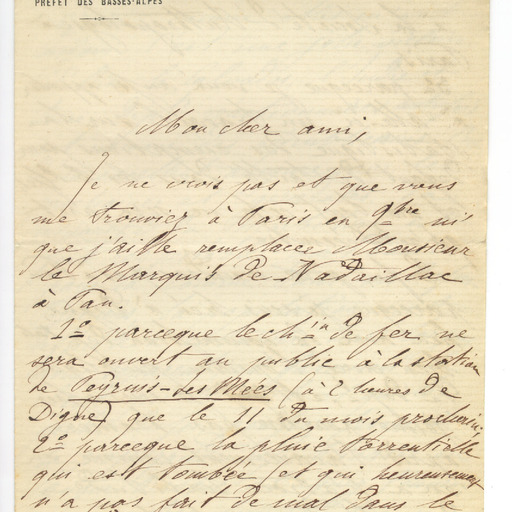 PRÉFET DES BASSES-ALPES
Mon cher ami,
Je ne crois pas et que vous
me trouviez à Paris en 9bre ni
que j'aille remplacer Monsieur
le Marquis de Nadaillac
à Pau.
1o parceque le chin de fer ne
sera ouvert au public à la station
de Peyruis-les Mées (à 2 heures de
Digne) que le 11 du mois prochain;
2o parceque la pluie torrentielle
qui est tombée (et qui heureusement
n'a pas fait de mal dans le